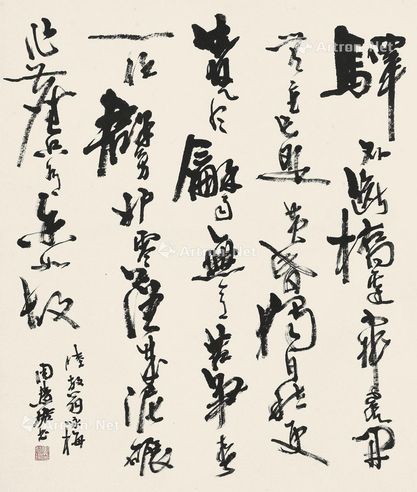 驛外斷橋邊寂寞開
無主已是黃昏獨自愁更
著風和雨無意苦爭春
一任群芳妒零落成泥碾
作塵只有香如故
陸放翁詠梅
周慧珺書
Artron.Net